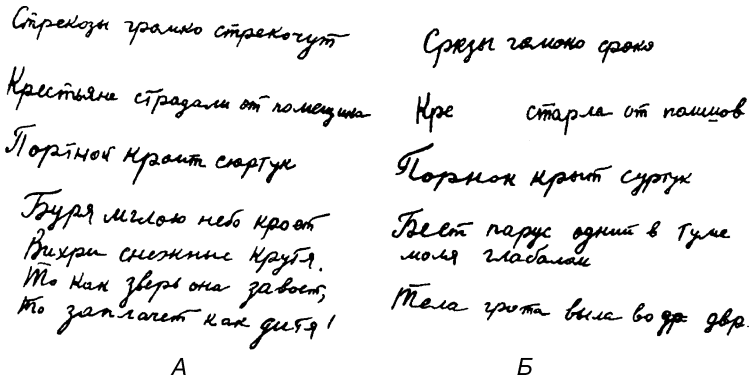 Стрекозы громко стрекочут
Крестьяне страдали от помещика
Портной кроит сюртук
Буря мглою небо кроет
Вихри снежные крутя.
То как зверь она завоет,
То заплачет как дитя!
А
Сркзы гомоко сроко
Кре старла от помшов
Порнок крыт суртук
Беет парус одний в туме
моля глабалом
Тела грота выла во др двр.
Б